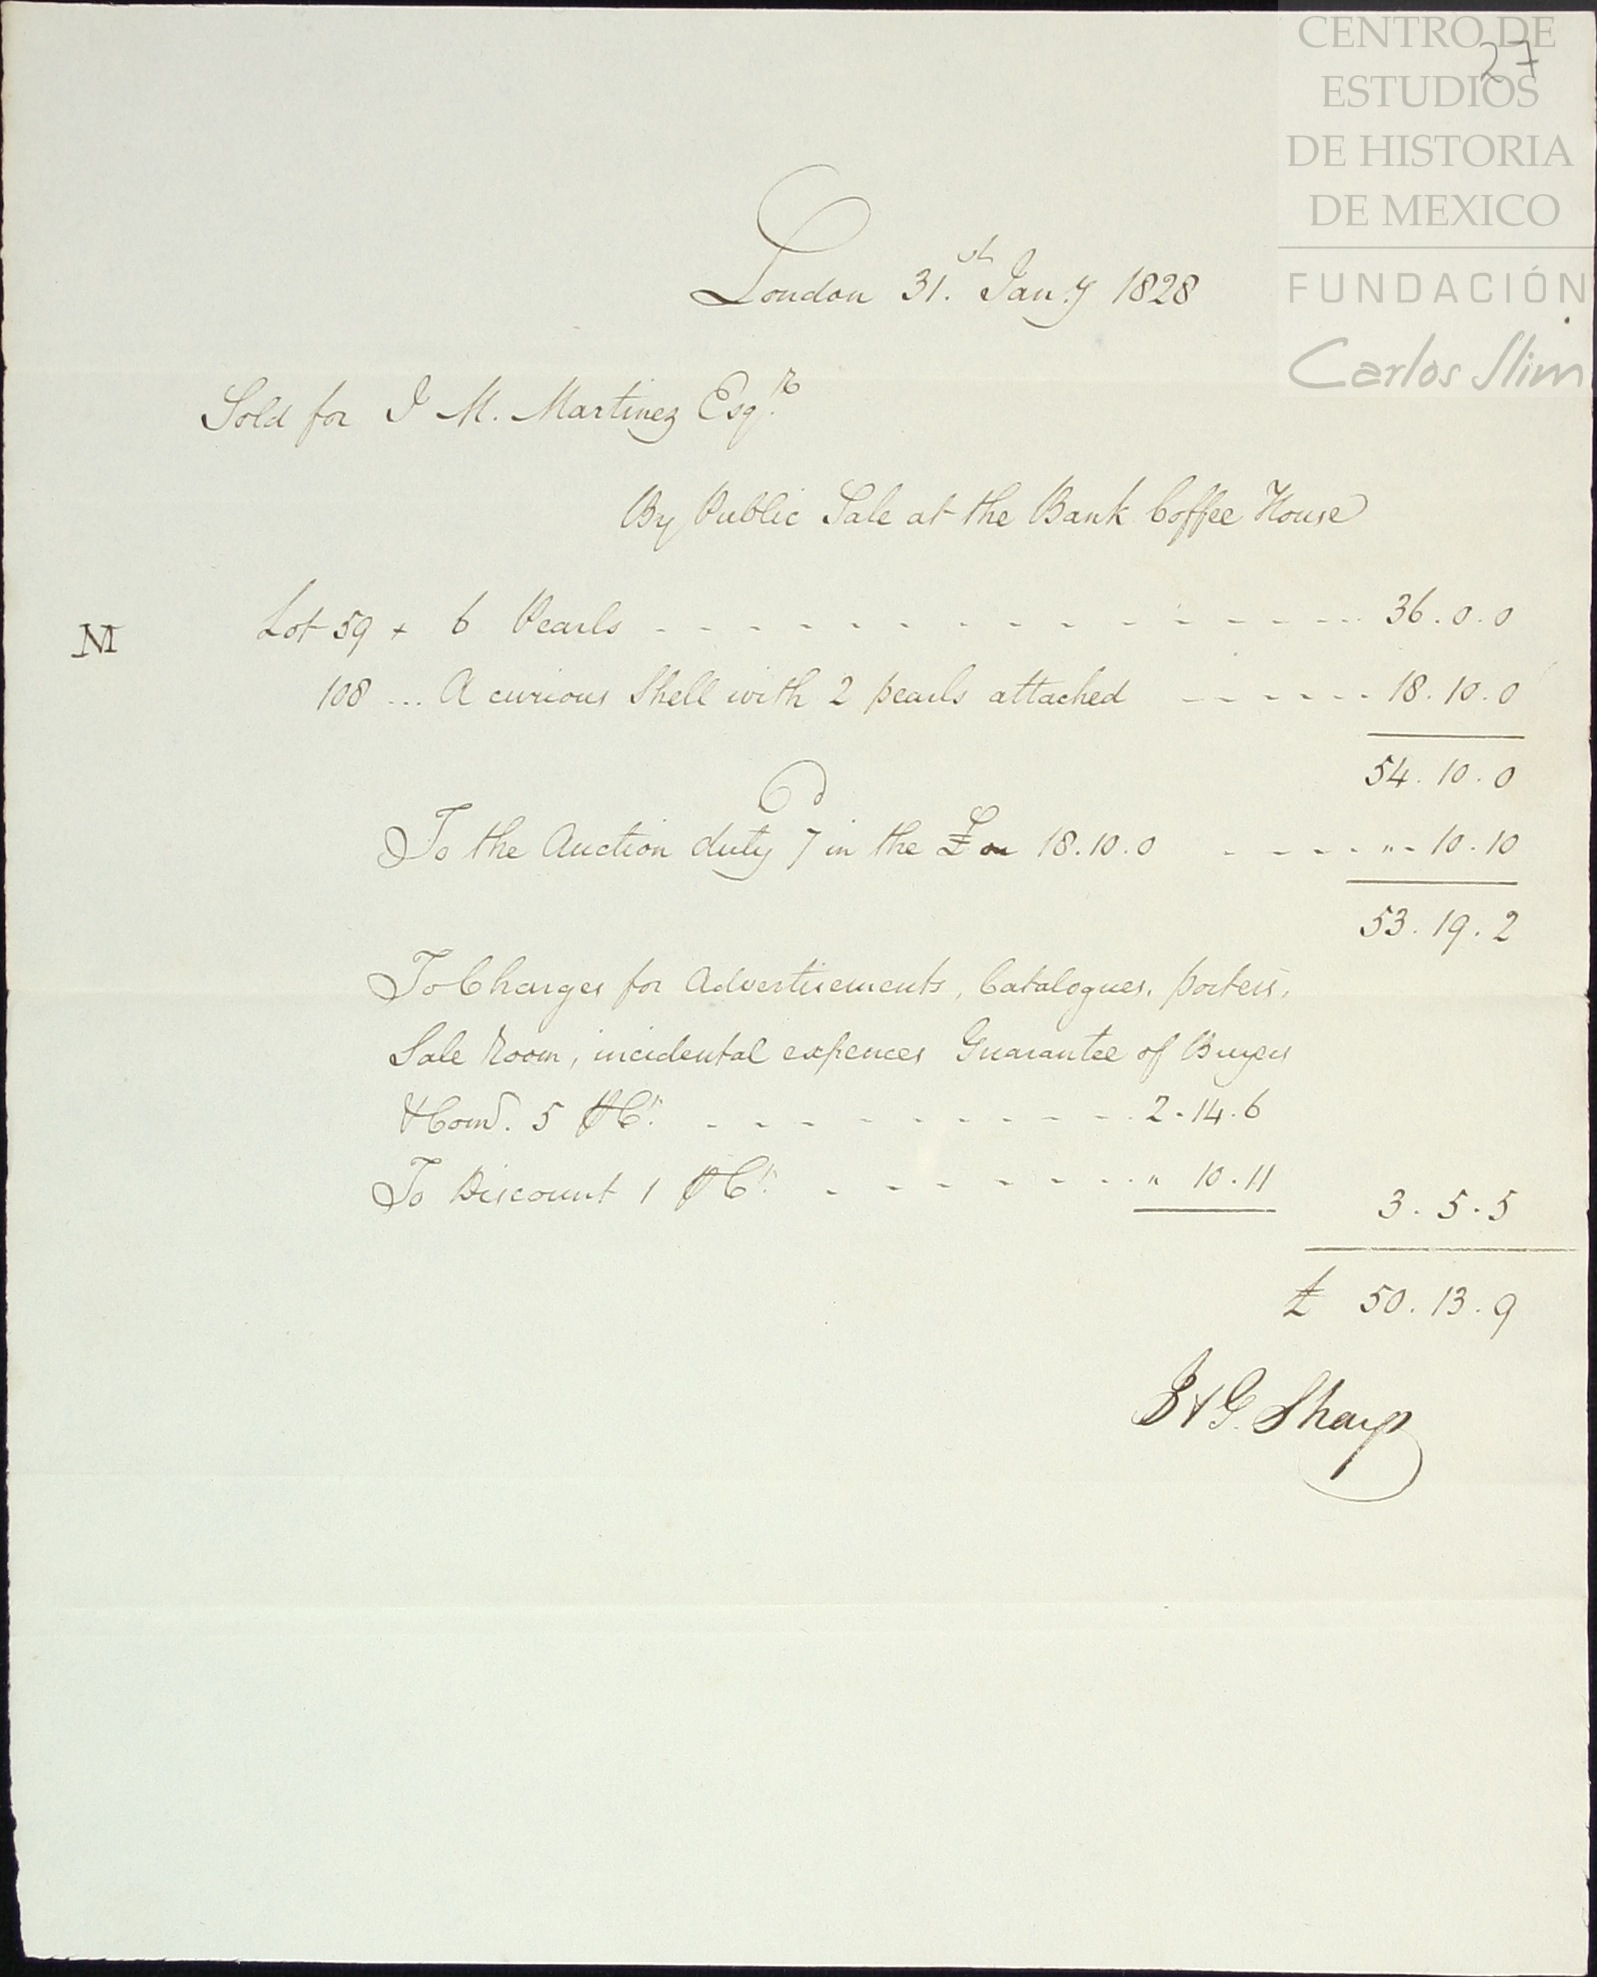 CENTRO DE
ESTUDIOS
DE HISTORIA
DE MEXICO
FUNDACIÓN
Carlos Slim
27
London 31.st Jan.y 1828
Sold for J M. Martinez Esq.r
By Public Sale at the Bank Coffee House
M Lot 59 + 6 Pearls - - - - - - - - - - - - - - - - 36.0.0
108 ... A curious Shell with 2 pearls attached - - - - - - 18.10.0
54.10.0
To the Auction duty 7d in the £ on 18.10.0 - - - - " - 10.10
53.19.2
To Charges for Advertisements, Catalogues, porters,
Sale Room, incidental expences Guarantee of Buyers
& Comn. 5 ⅌ Ct. - - - - - - - - - - 2.14.6
To Discount 1 ⅌ Ct. - - - - - - - - " 10.11 3.5.5
£ 50.13.9
J & G. Sharp